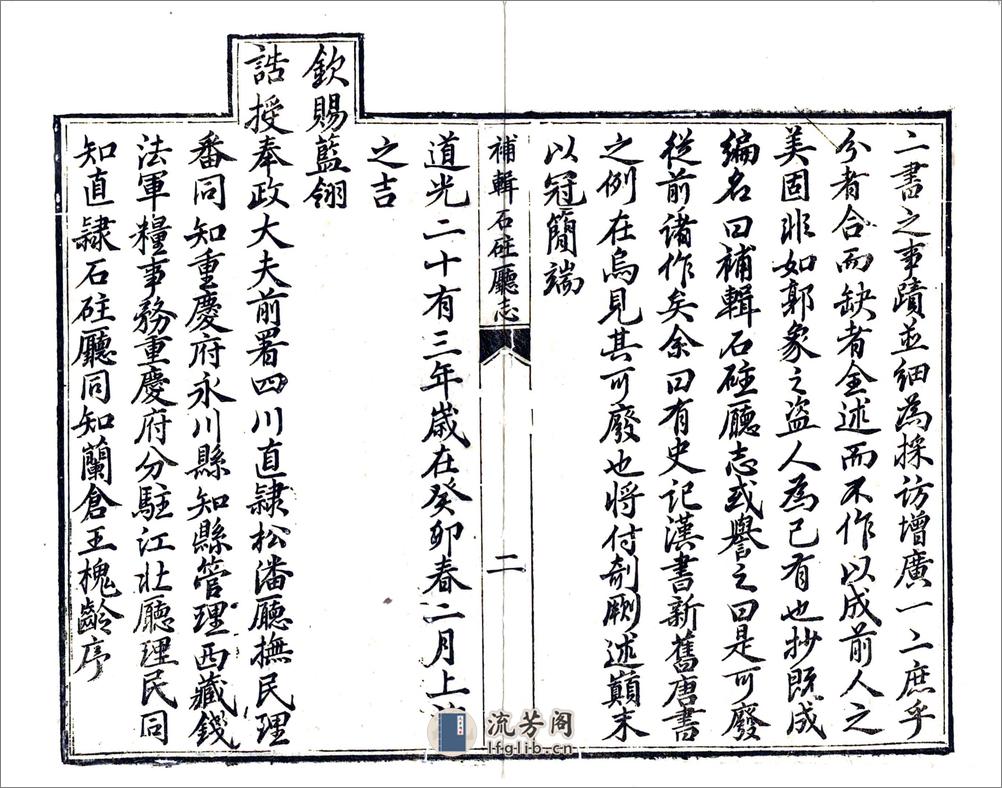 二書之事蹟並細為採訪增廣一二庶乎
分者合而缺者全述而不作以成前人之
美固非如郭象之盜人為己有也抄旣成
編名曰補輯石砫廳志或譽之曰是可廢
從前諸作矣余曰有史記漢書新舊唐書
之例在烏見其可廢也將付剞劂述巔末
以冠簡端
補輯石砫廳志
二
道光二十有三年歲在癸卯春二月上
之吉
欽賜藍翎
誥授奉政大夫前署四川直隸松潘廳撫民理
番同知重慶府永川縣知縣管理西藏錢
法軍糧事務重慶府分駐江北廳理民同
知直隸石砫廳同知蘭倉王槐齡序
流芳阁
lfglib.cn